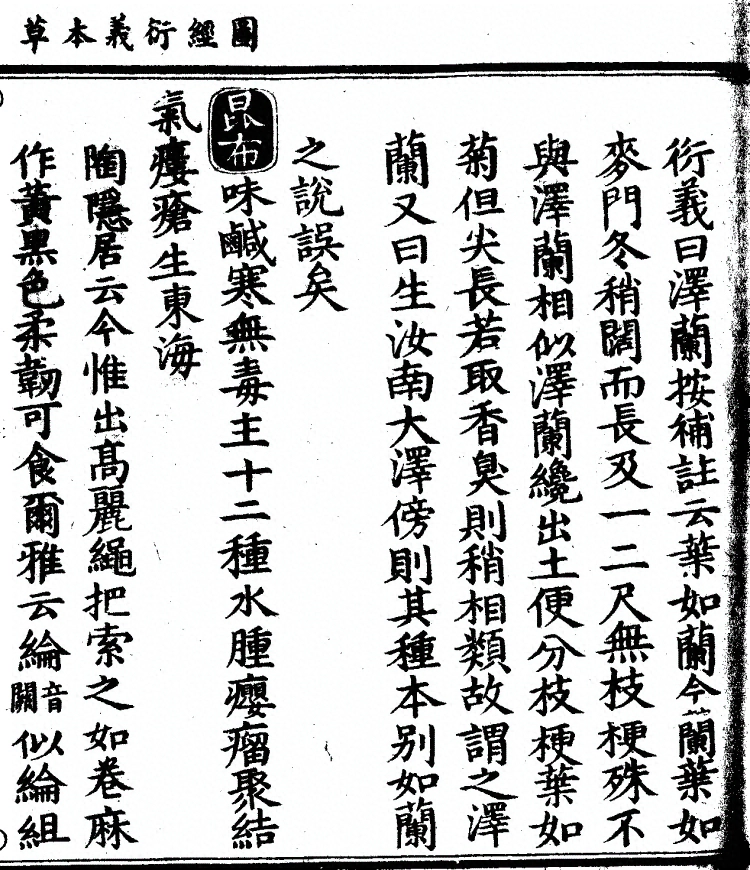 圖經衍義本草
衍義曰澤蘭按補註云葉如蘭今蘭葉如
麥門冬稍闊而長及一二尺無枝梗殊不
與澤蘭相似澤蘭纔出土便分枝梗葉如
菊但尖長若取香臭則稍相類故謂之澤
蘭又曰生汝南大澤傍則其種本別如蘭
之說誤矣
昆布味鹹寒無毒主十二種水腫癭瘤聚結
氣瘻瘡生東海
陶隱居云今惟出高麗繩把索之如卷麻
作黃黑色柔韌可食爾雅云綸音關似綸組